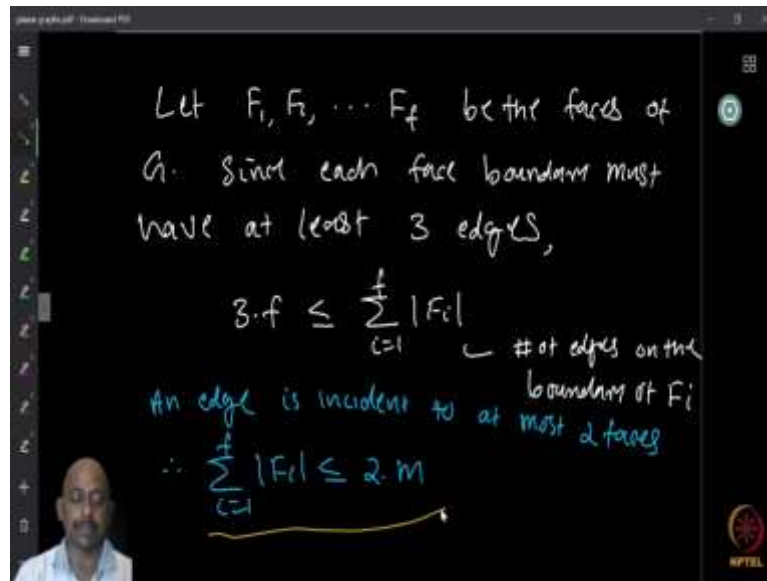 Let F₁, F₂, ⋯ F_f be the faces of
G. Since each face boundary must
have at least 3 edges,
3·f ≤ ∑_{i=1}^{f} |F_i|
# of edges on the
boundary of F_i
An edge is incident to at most 2 faces
∴ ∑_{i=1}^{f} |F_i| ≤ 2·m
NPTEL